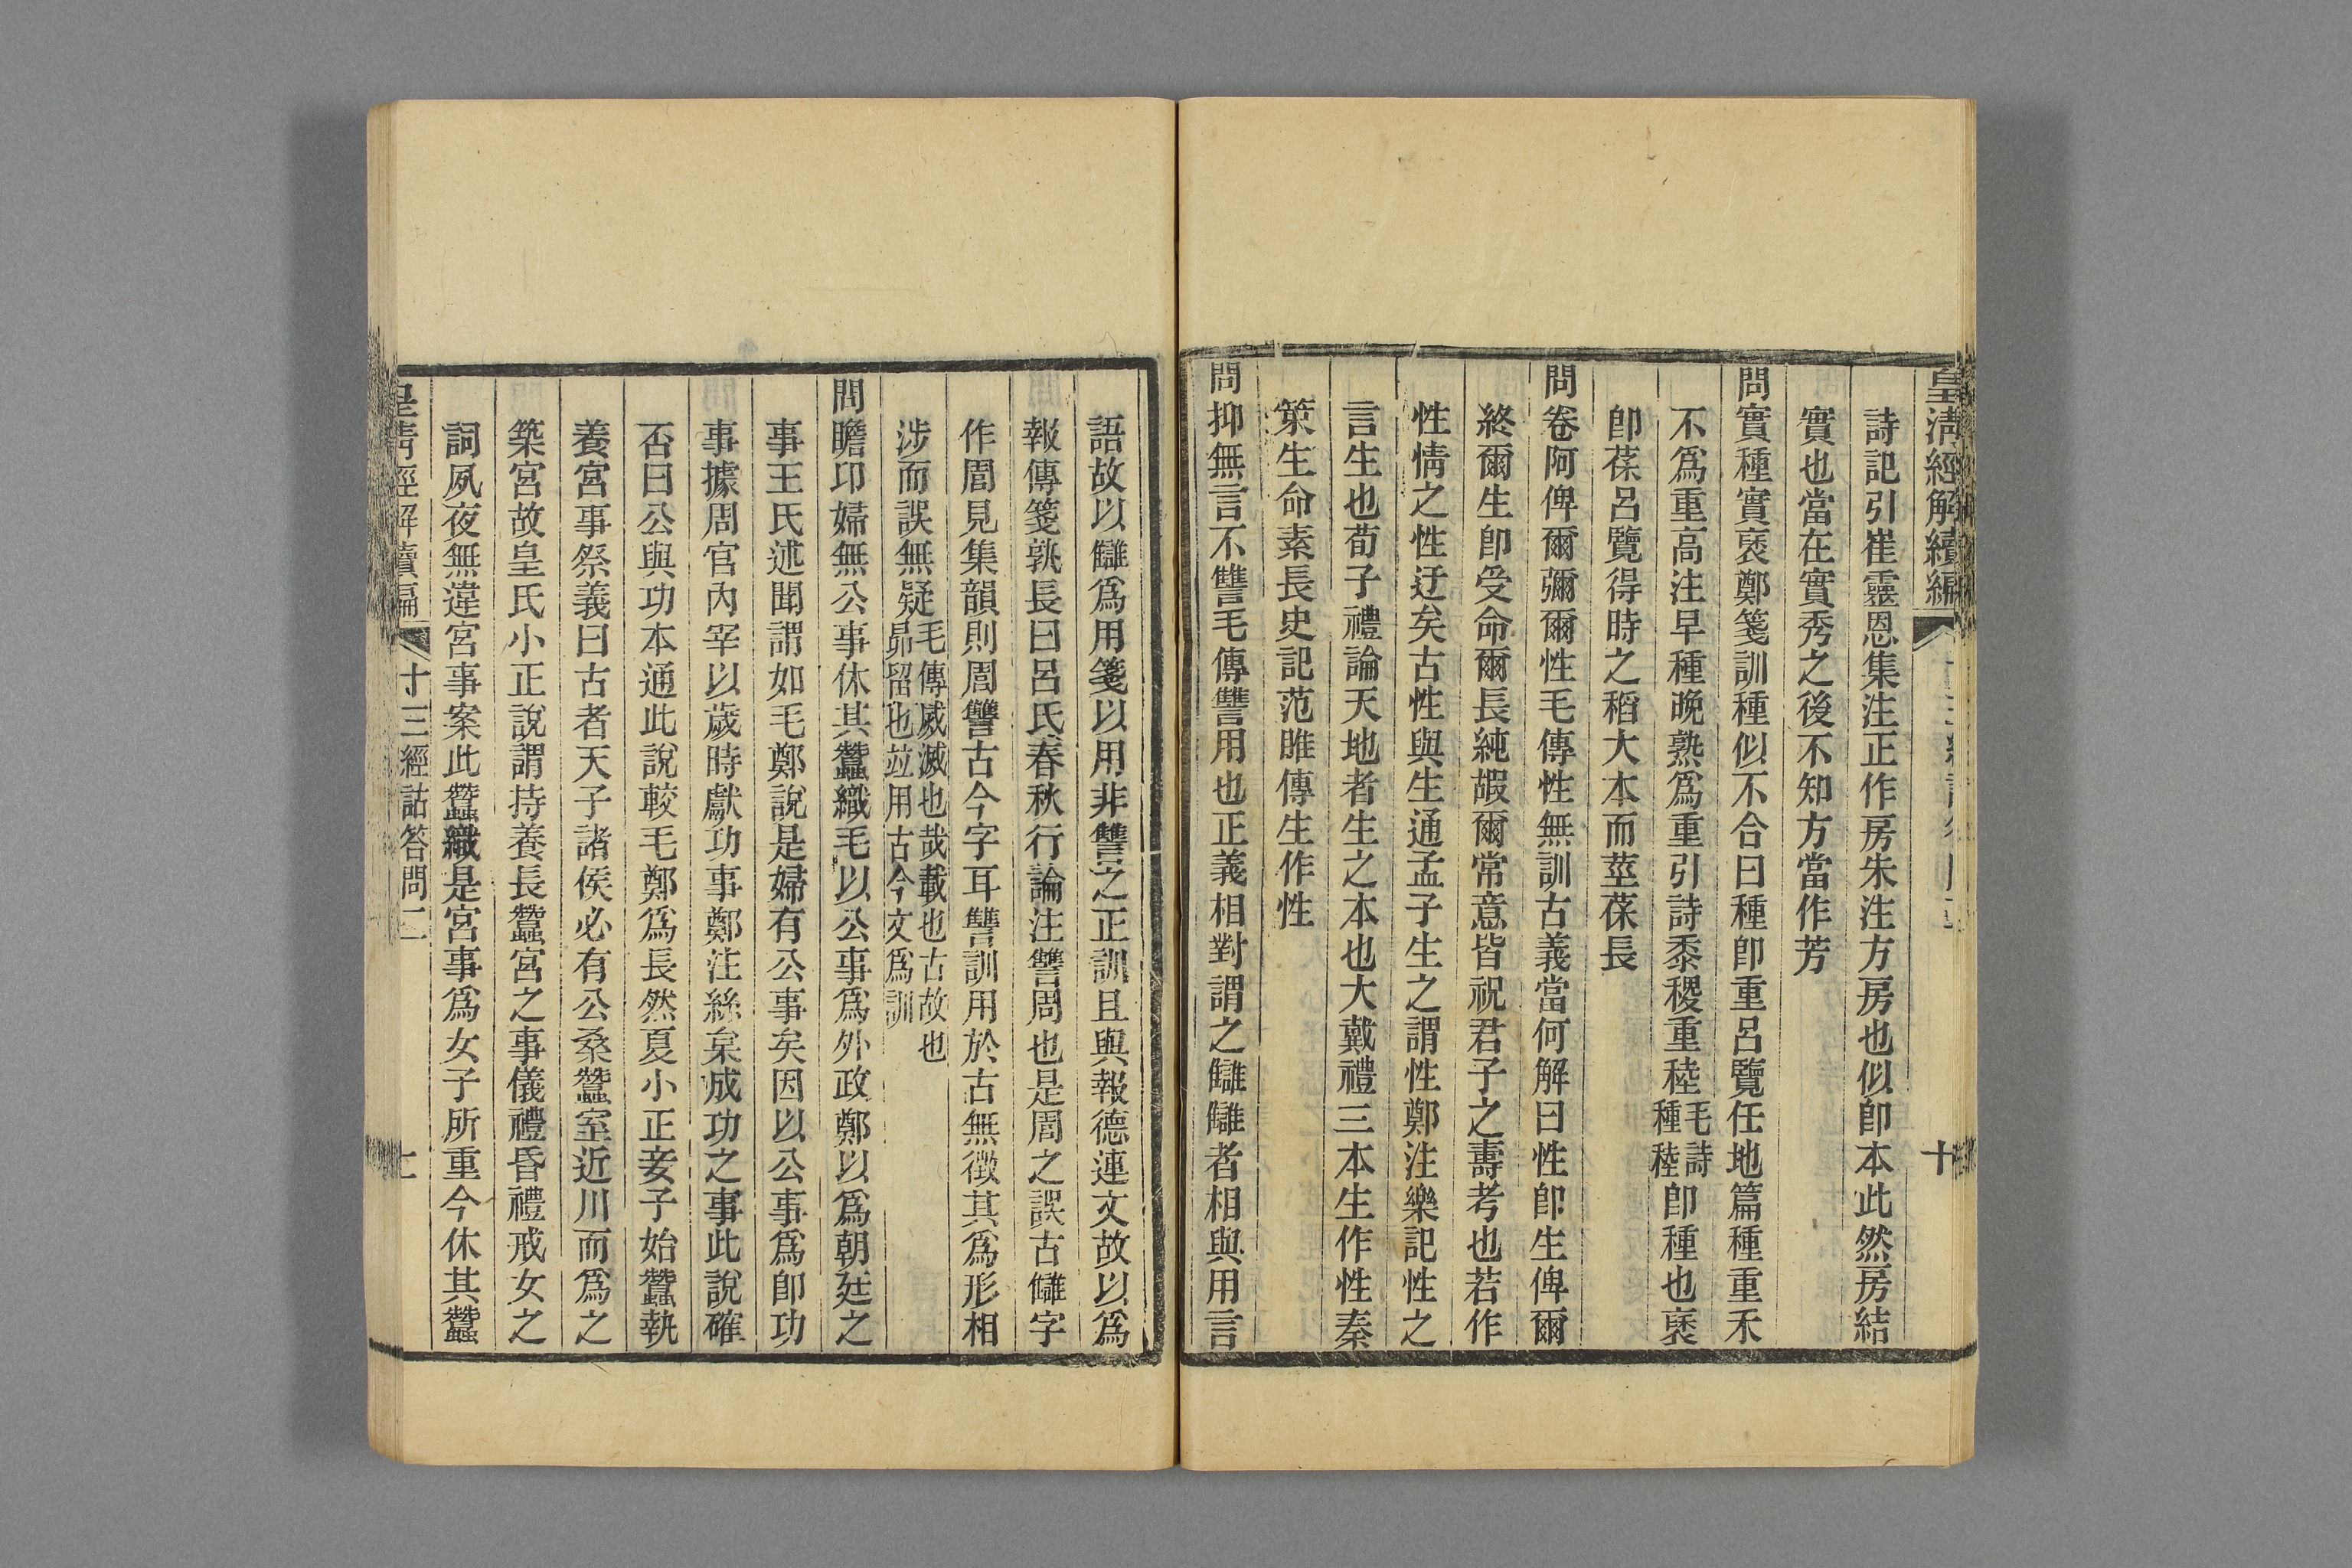 皇清經解續編 十
詩記引崔靈恩集注正作房朱注方房也似卽本此然房結
實也當在實秀之後不知方當作芳
問實種實裦鄭箋訓種似不合曰種卽重呂覽任地篇種重禾
不爲重高注早種晚熟爲重引詩黍稷重稑毛詩種稑卽種也裦
卽葆呂覽得時之稻大本而莖葆長
問卷阿俾爾彌爾性毛傳性無訓古義當何解曰性卽生俾爾
終爾生卽受命爾長純嘏爾常意皆祝君子之壽考也若作
性情之性迂矣古性與生通孟子生之謂性鄭注樂記性之
言生也荀子禮論天地者生之本也大戴禮三本生作性秦
策生命素長史記范雎傳生作性
問抑無言不讐毛傳讐用也正義相對謂之讎讎者相與用言
語故以讎爲用箋以用非讐之正訓且與報德連文故以爲
報傳箋孰長曰呂氏春秋行論注讐周也是周之誤古讎字
作周見集韻則周讐古今字耳讐訓用於古無徵其爲形相
涉而誤無疑毛傳烕滅也哉載也古故也昴留也竝用古今文爲訓
問瞻卬婦無公事休其蠶織毛以公事爲外政鄭以爲朝廷之
事王氏述聞謂如毛鄭說是婦有公事矣因以公事爲卽功
事據周官內宰以歲時獻功事鄭注絲枲成功之事此說確
否曰公與功本通此說較毛鄭爲長然夏小正妾子始蠶執
養宮事祭義曰古者天子諸侯必有公桑蠶室近川而爲之
築宮故皇氏小正說謂持養長蠶宮之事儀禮昏禮戒女之
詞夙夜無違宮事案此蠶織是宮事爲女子所重今休其蠶
皇清經解續編 十三經詁答問二